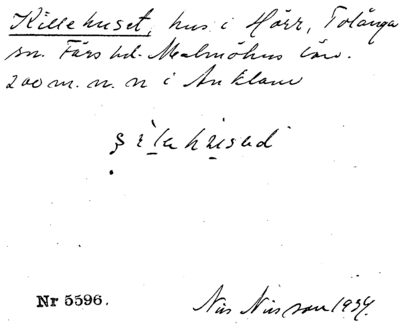 Killehuset, hus i Hörr, Tolånga
sn. Färs hd. Malmöhus län.
200 m. n. n i Anklam
Nr 5596.
Nils Nilsson 1934.